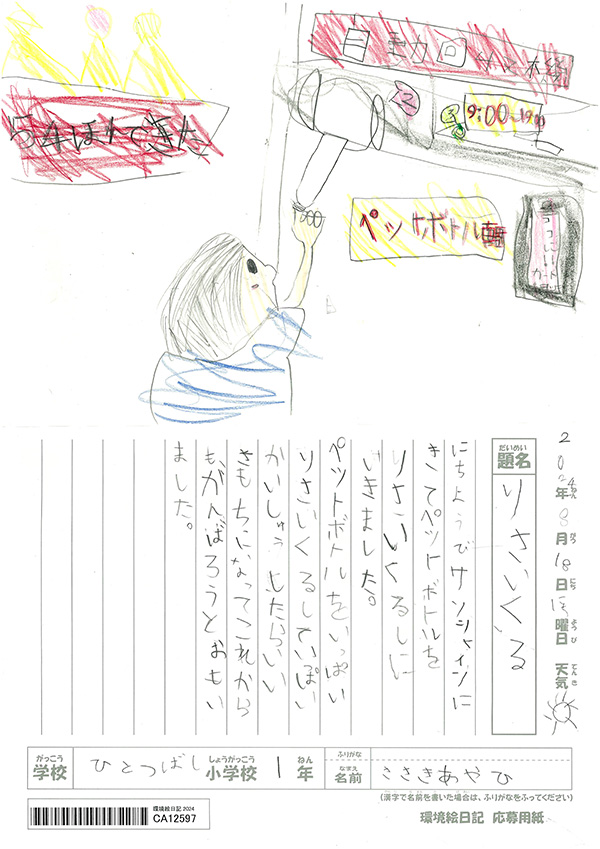 自動回収機
54ほんできた
2
9:00〜19:00
ペットボトル
カート
1000
2024年ねん8月がつ18日にち日曜日ようび 天気てんき
だいめい
題名
りさいくる
にちようびサンシャインに
きてペットボトルを
りさいくるしに
いきました。
ペットボトルをいっぱい
りさいくるしていっぱい
かいしゅうしたらいい
きもちになってこれから
もがんばろうとおもい
ました。
がっこう
学校
ひとつばし
しょうがっこう
小学校
1
ねん
年
ふりがな
なまえ
名前
ささきあやひ
(漢字で名前を書いた場合は、ふりがなをふってください)
環境絵日記2024
CA12597
環境絵日記 応募用紙